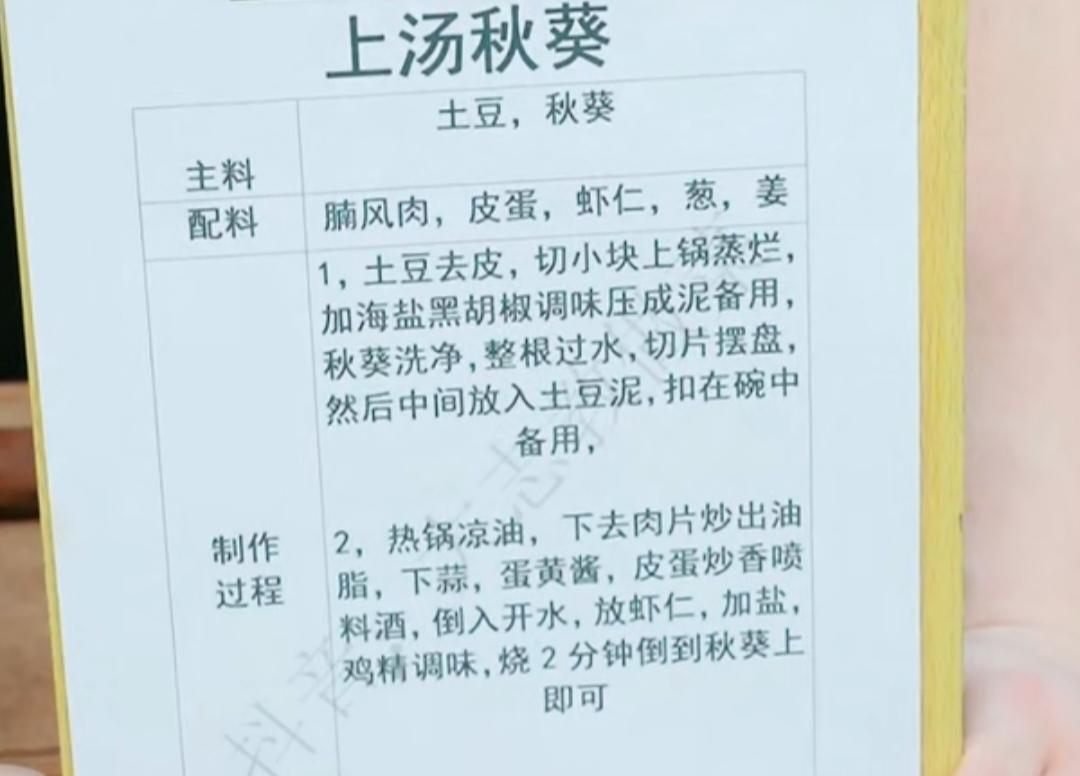 上汤秋葵
土豆，秋葵
主料
配料
腩风肉，皮蛋，虾仁，葱，姜
1，土豆去皮，切小块上锅蒸烂，
加海盐黑胡椒调味压成泥备用，
秋葵洗净，整根过水，切片摆盘，
然后中间放入土豆泥，扣在碗中
备用，
制作
过程
2，热锅凉油，下去肉片炒出油
脂，下蒜，蛋黄酱，皮蛋炒香喷
料酒，倒入开水，放虾仁，加盐，
鸡精调味，烧2分钟倒到秋葵上
即可